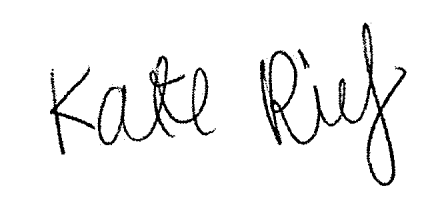 Kate Rief